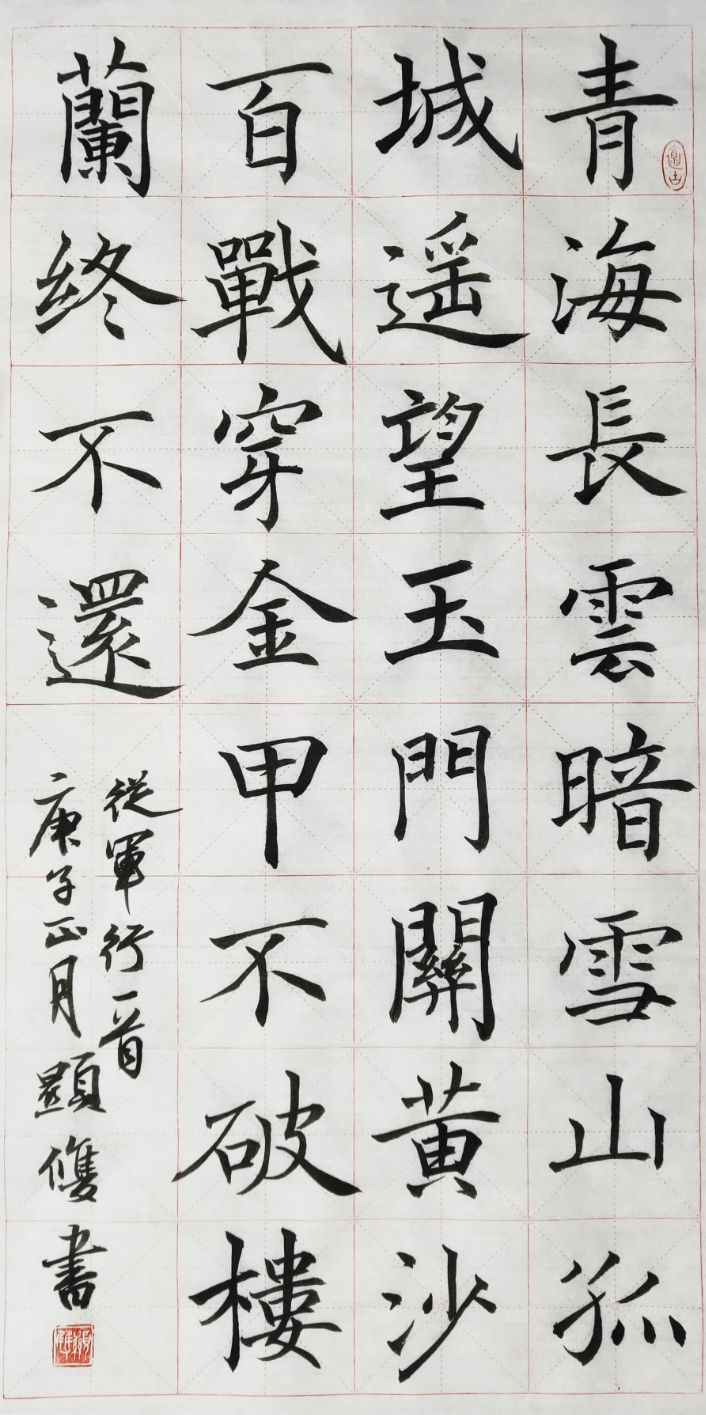 青海長雲暗雪山孤
城遥望玉門關黃沙
百戰穿金甲不破樓
蘭終不還
從軍行一首
庚子正月顯雙書